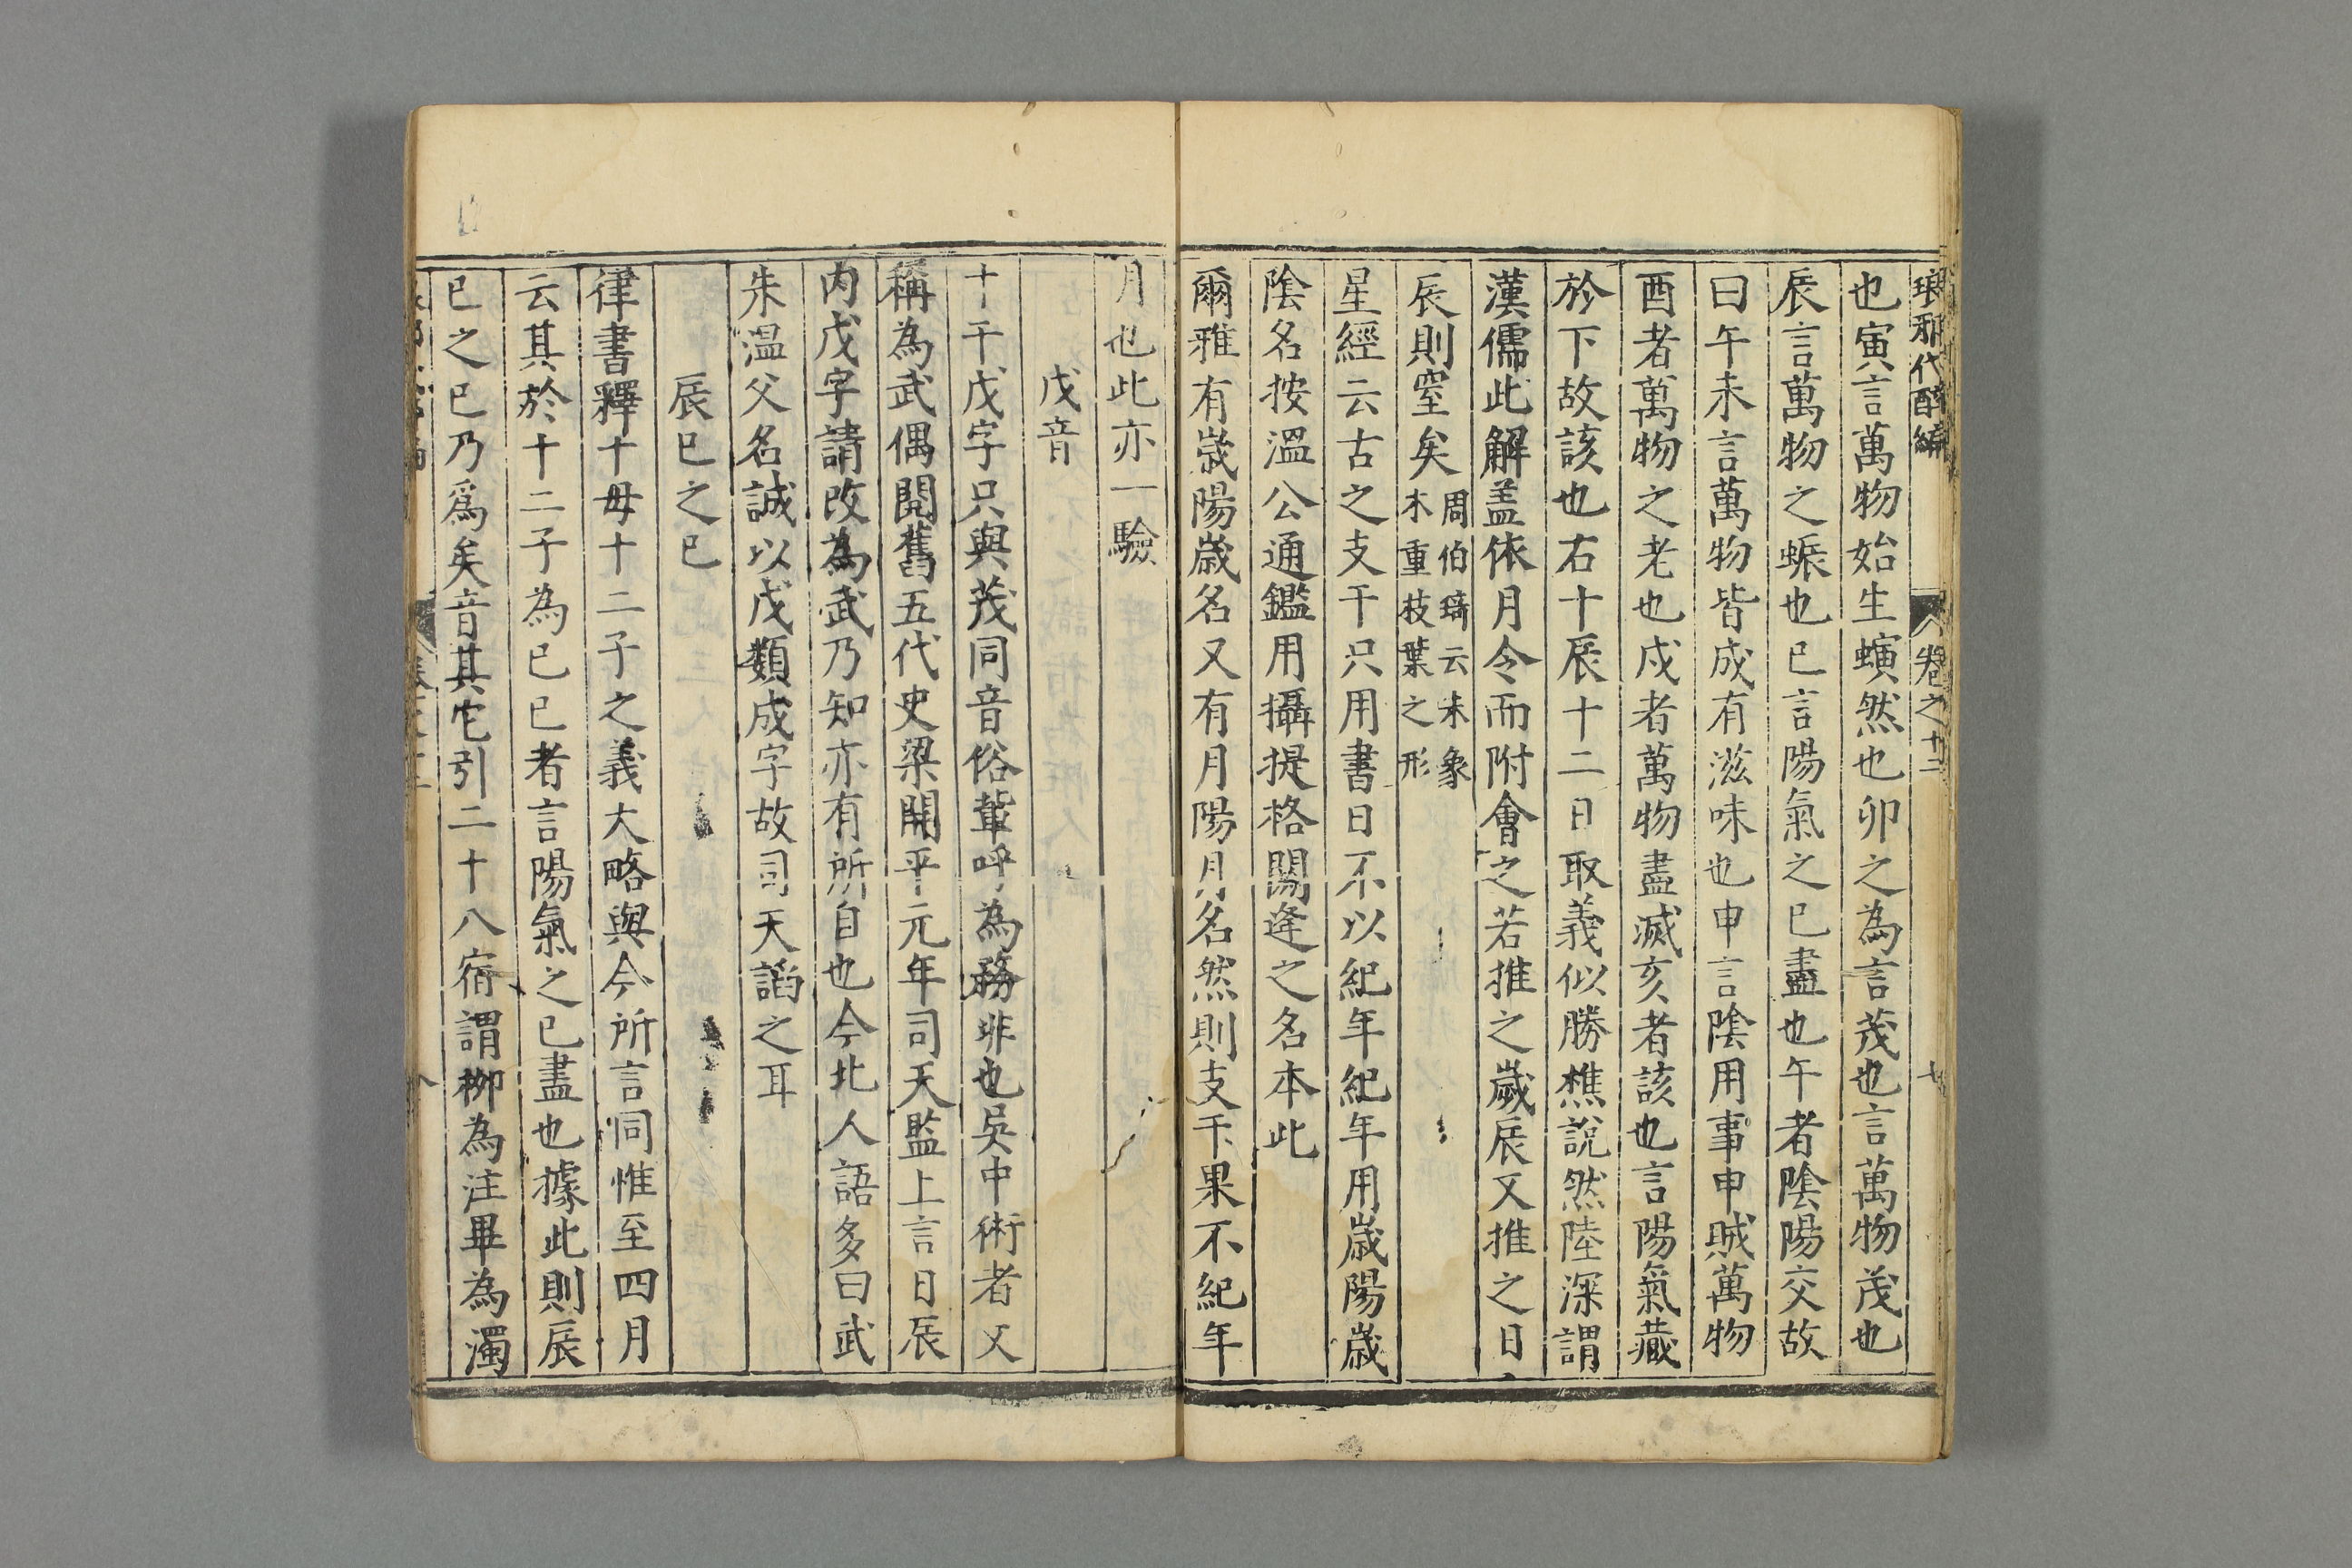 琅邪代醉編 卷之十二 七
也寅言萬物始生螾然也卯之為言茂也言萬物茂也
辰言萬物之蜄也巳言陽氣之巳盡也午者陰陽交故
曰午未言萬物皆成有滋味也申言陰用事申賊萬物
酉者萬物之老也戌者萬物盡滅亥者該也言陽氣藏
於下故該也右十辰十二日取義似勝樵說然陸深謂
漢儒此解盖依月令而附會之若推之歲辰又推之日
辰則窒矣周伯琦云未象
木重枝葉之形
星經云古之支干只用書日不以紀年紀年用歲陽歲
陰名按溫公通鑑用攝提格閼逢之名本此
爾雅有歲陽歲名又有月陽月名然則支干果不紀年
月也此亦一驗
戊音
十干戊字只與茂同音俗軰呼為務非也吳中術者又
稱為武偶閱舊五代史梁開平元年司天監上言日辰
内戊字請改為武乃知亦有所自也今北人語多曰武
朱温父名誠以戊類成字故司天諂之耳
辰巳之巳
律書釋十毋十二子之義大略與今所言同惟至四月
云其於十二子為巳巳者言陽氣之巳盡也據此則辰
巳之巳乃爲矣音其它引二十八宿謂柳為注畢為濁
八